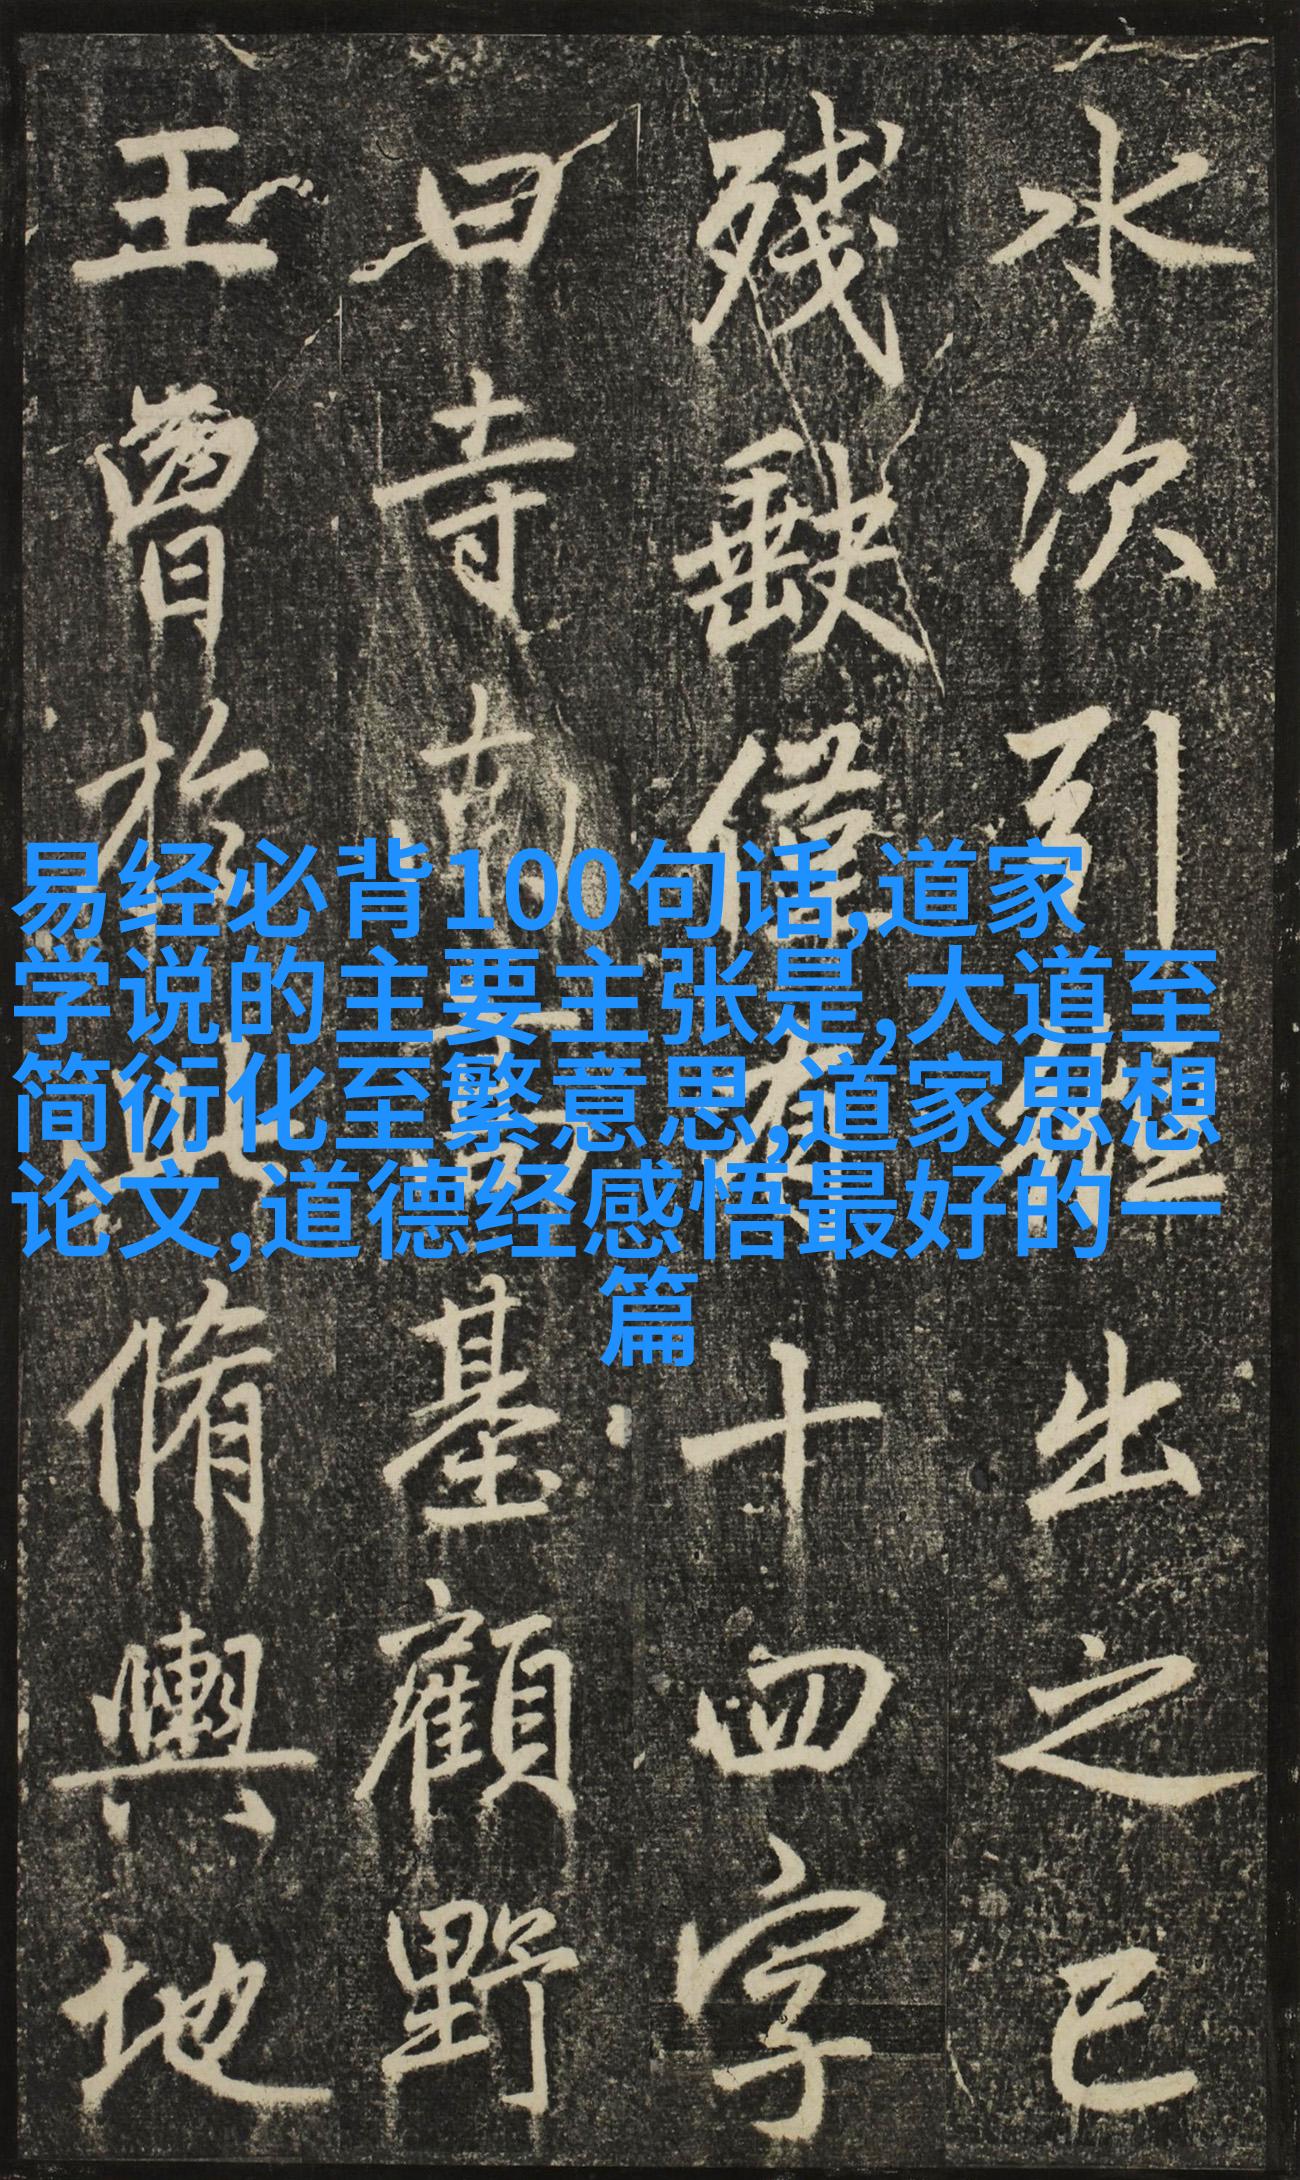 水次引出之已
殘缺僅十四字
曰寺南高基顧野
王曾於此脩輿地
易经必背100句话,道家
学说的主要主张是,大道至
简衍化至繁意思,道家思想
论文,道德经感悟最好的一
篇